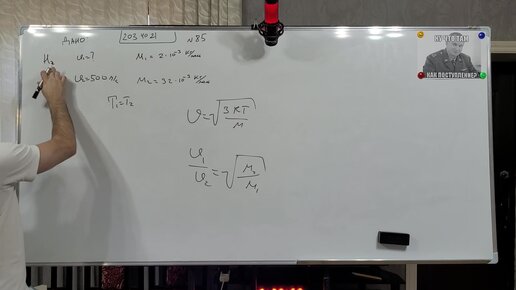 ДАНО
2034021
№85
H₂ υ₁=? M₁=2·10⁻³ кг/моль
υ₂=500 м/с M₂=32·10⁻³ кг/моль
T₁=T₂
υ=√(3RT/M)
υ₁/υ₂=√(M₂/M₁)
НУ ЧТО ТАМ
КАК ПОСТУПЛЕНИЕ?